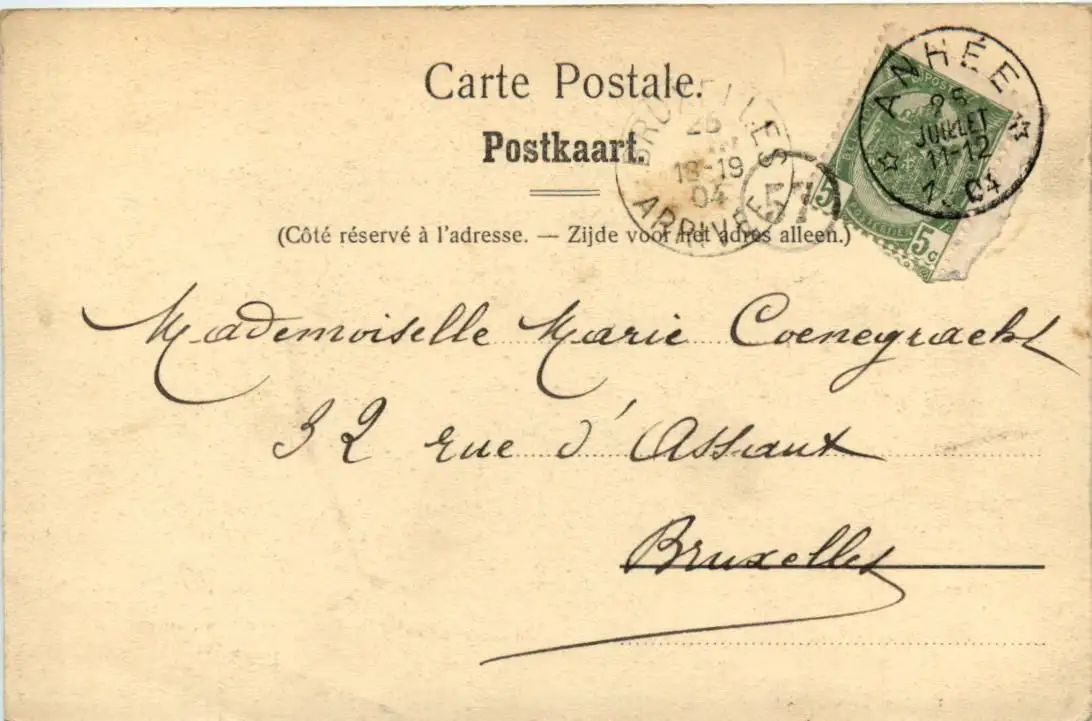 Carte Postale.
Postkaart.
(Côté réservé à l'adresse. — Zijde voor het adres alleen.)
BRUXELLES
18-19
04
ARRIVÉE
57
ANHÉE
JUILLET
11-12
04
POSTES
5c
5c
Mademoiselle Marie Coenegracht
32 rue d'Assaut
Bruxelles